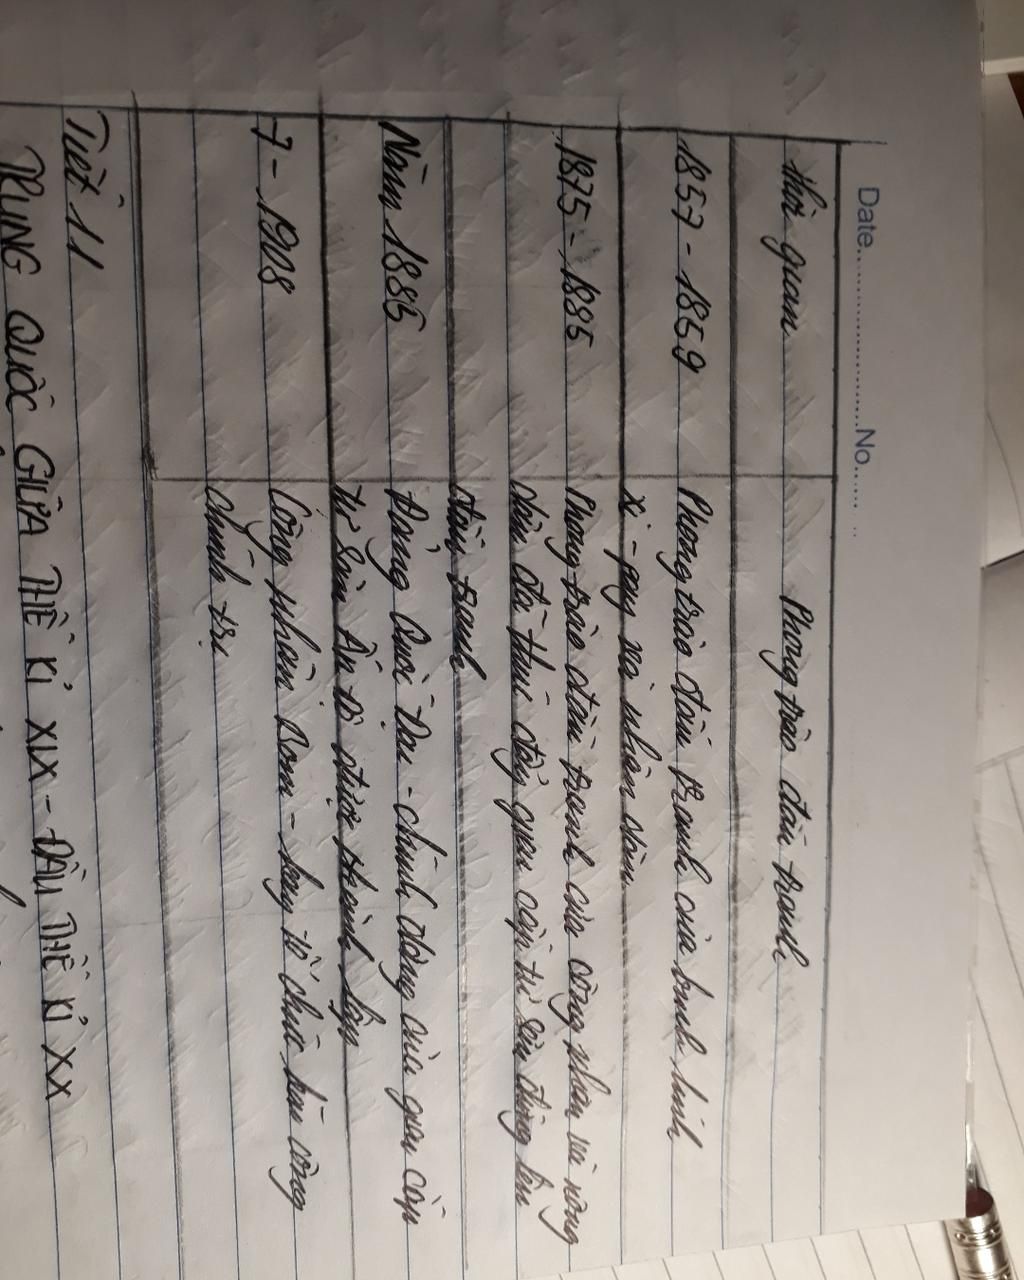 Date........................No.........
Thời gian Phong trào đấu tranh
1857 - 1859 Phong trào đấu tranh của binh lính
Xi - pay và nhân dân
1875 - 1885 Phong trào đấu tranh của công nhân và nông
dân đã thúc đẩy giai cấp tư sản đứng lên
đấu tranh
Năm 1885 Đảng Quốc Đại - chính đảng của giai cấp
tư sản Ấn Độ được thành lập
7 - 1908 Công nhân Bom - bay tổ chức bãi công
chính trị
Tiết 11
TRUNG QUỐC GIỮA THẾ KỈ XIX - ĐẦU THẾ KỈ XX